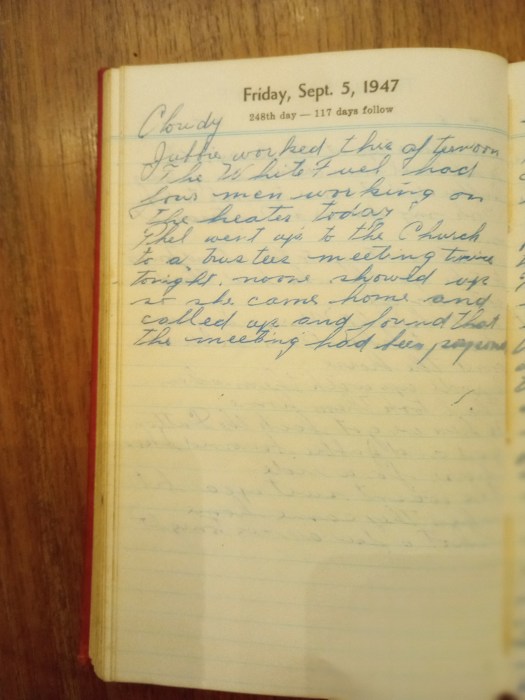 Friday, Sept. 5, 1947
248th day — 117 days follow
Cloudy
worked this afternoon
The White Fuel had
four men working on
the heater today.
Phel went up to the Church
to a trustees meeting
tonight. noone showed up
so she came home and
called up and found that
the meeting had been